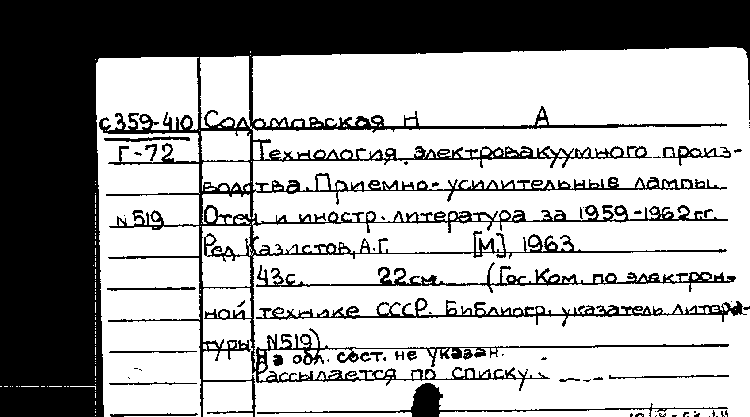 с359-410 Соломовская, Н А
Г-72 Технология электровакуумного произ-
водства. Приемно-усилительные лампы.
N519 Отеч и иностр. литература за 1959-1962гг.
Ред. Казистов, А.Г. [М], 1963.
43с. 22см. (Гос. Ком. по электрон-
ной технике СССР. Библиогр. указатель литера-
туры N519).
На обл. сост. не указан.
Рассылается по списку.